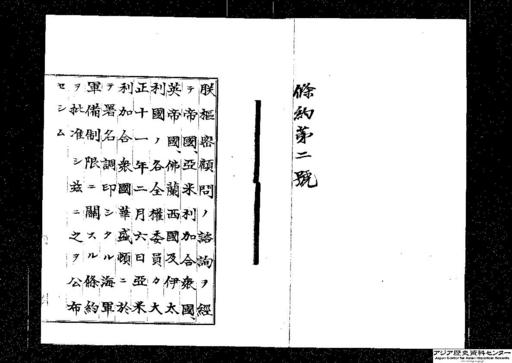 條約第二號
朕樞密顧問ノ諮詢ヲ經
テ帝國、亞米利加合衆國、
英帝國、佛蘭西國及伊太
利國ノ各全權委員カ大
正十一年二月六日亞米
利加合衆國華盛頓ニ於
テ署名調印シタル海軍
軍備制限ニ關スル條約
ヲ批准シ茲ニ之ヲ公布
セシム
アジア歴史資料センター
Japan Center for Asian Historical Records